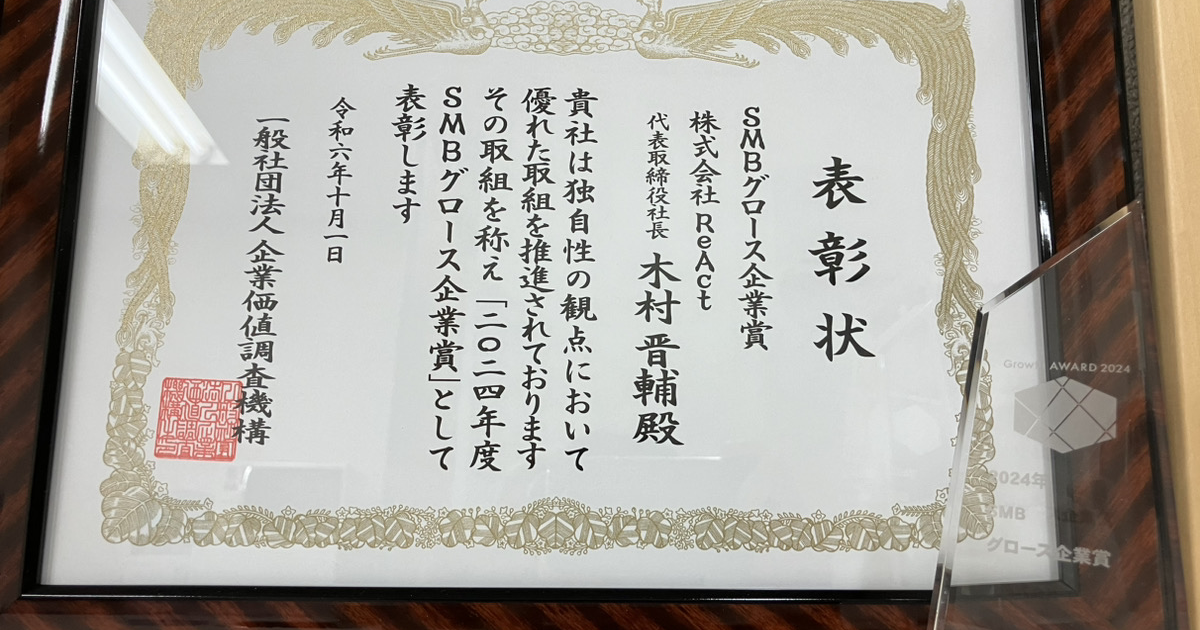 表彰状
SMBグロース企業賞
株式会社 ReAct
代表取締役社長 木村晋輔殿
貴社は独自性の観点において
優れた取組を推進されております
その取組を称え「二〇二四年度
SMBグロース企業賞」として
表彰します
令和六年十月一日
一般社団法人 企業価値調査機構
Growth AWARD 2024
2024年
SMB
グロース企業賞